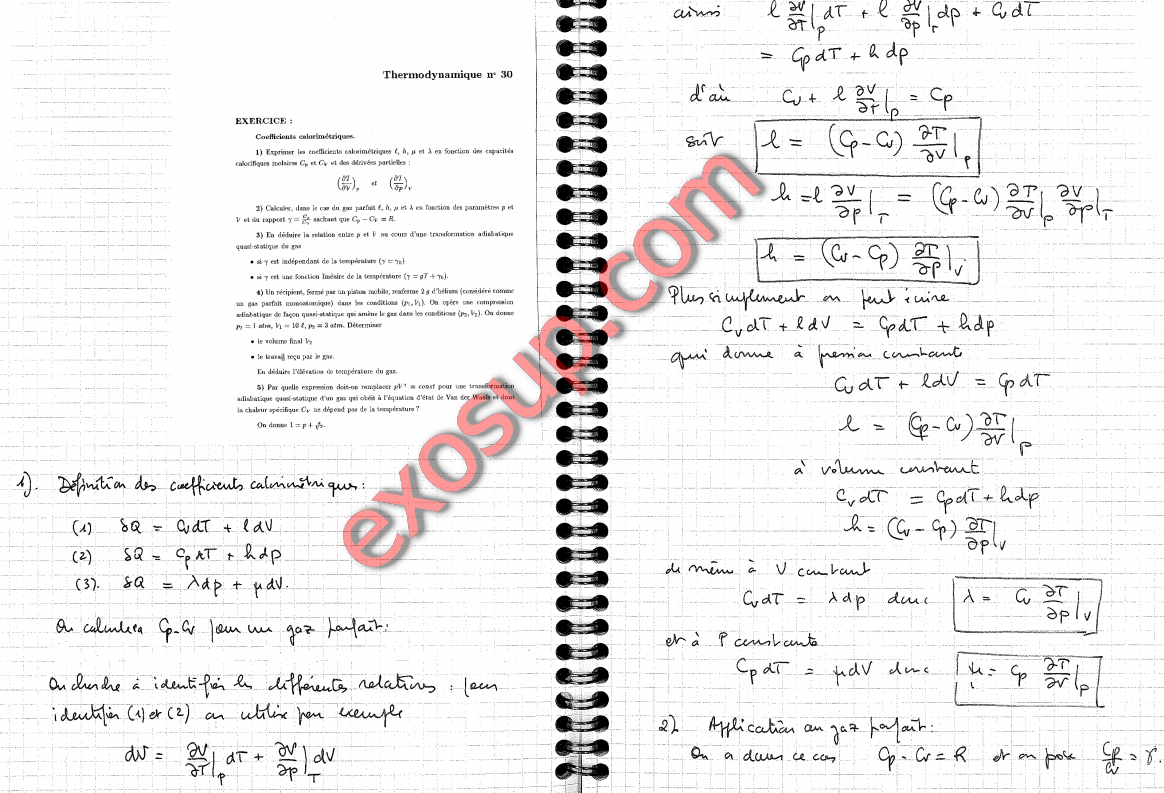 Thermodynamique n° 30
EXERCICE :
Coefficients calorimétriques.
1) Exprimer les coefficients calorimétriques ℓ, h, μ et λ en fonction des capacités
calorifiques molaires Cp et CV et des dérivées partielles :
(∂T/∂V)p et (∂T/∂p)V
2) Calculer, dans le cas du gaz parfait ℓ, h, μ et λ en fonction des paramètres p et
V et du rapport γ = Cp/CV sachant que Cp − CV = R.
3) En déduire la relation entre p et V au cours d'une transformation adiabatique
quasi-statique du gaz
• si γ est indépendant de la température (γ = γ0)
• si γ est une fonction linéaire de la température (γ = gT + γ0).
4) Un récipient, fermé par un piston mobile, renferme 2 g d'hélium (considéré comme
un gaz parfait monoatomique) dans les conditions (p1, V1). On opère une compression
adiabatique de façon quasi-statique qui amène le gaz dans les conditions (p2, V2). On donne
p1 = 1 atm, V1 = 10 ℓ, p2 = 3 atm. Déterminer
• le volume final V2
• le travail reçu par le gaz.
En déduire l'élévation de température du gaz.
5) Par quelle expression doit-on remplacer pVγ = const pour une transformation
adiabatique quasi-statique d'un gaz qui obéit à l'équation d'état de Van der Waals et dont
la chaleur spécifique CV ne dépend pas de la température ?
On donne l = p + a/V².
1). Définition des coefficients calorimétriques :
(1) δQ = CvdT + ldV
(2) δQ = CpdT + hdp
(3). δQ = λdp + μdV.
On calculera Cp-Cv pour un gaz parfait :
On cherche à identifier les différentes relations : pour
identifier (1) et (2) on utilise par exemple
dV = ∂V/∂T|p dT + ∂V/∂p|T dV
ainsi l ∂V/∂T|p dT + l ∂V/∂p|T dp + CvdT
= CpdT + hdp
d'où Cv + l ∂V/∂T|p = Cp
soit l = (Cp-Cv) ∂T/∂V|p
h = l ∂V/∂p|T = (Cp-Cv) ∂T/∂V|p ∂V/∂p|T
h = (Cv-Cp) ∂T/∂p|V
Plus simplement on peut écrire
CvdT + ldV = CpdT + hdp
qui donne à pression constante
CvdT + ldV = CpdT
l = (Cp-Cv) ∂T/∂V|p
à volume constant
CvdT = CpdT + hdp
h = (Cv-Cp) ∂T/∂p|V
de même à V constant
CvdT = λdp donc λ = Cv ∂T/∂p|V
et à P constante
CpdT = μdV donc μ = Cp ∂T/∂V|p
2). Application au gaz parfait :
On a dans ce cas Cp-Cv = R et on pose Cp/Cv = γ.
exosup.com